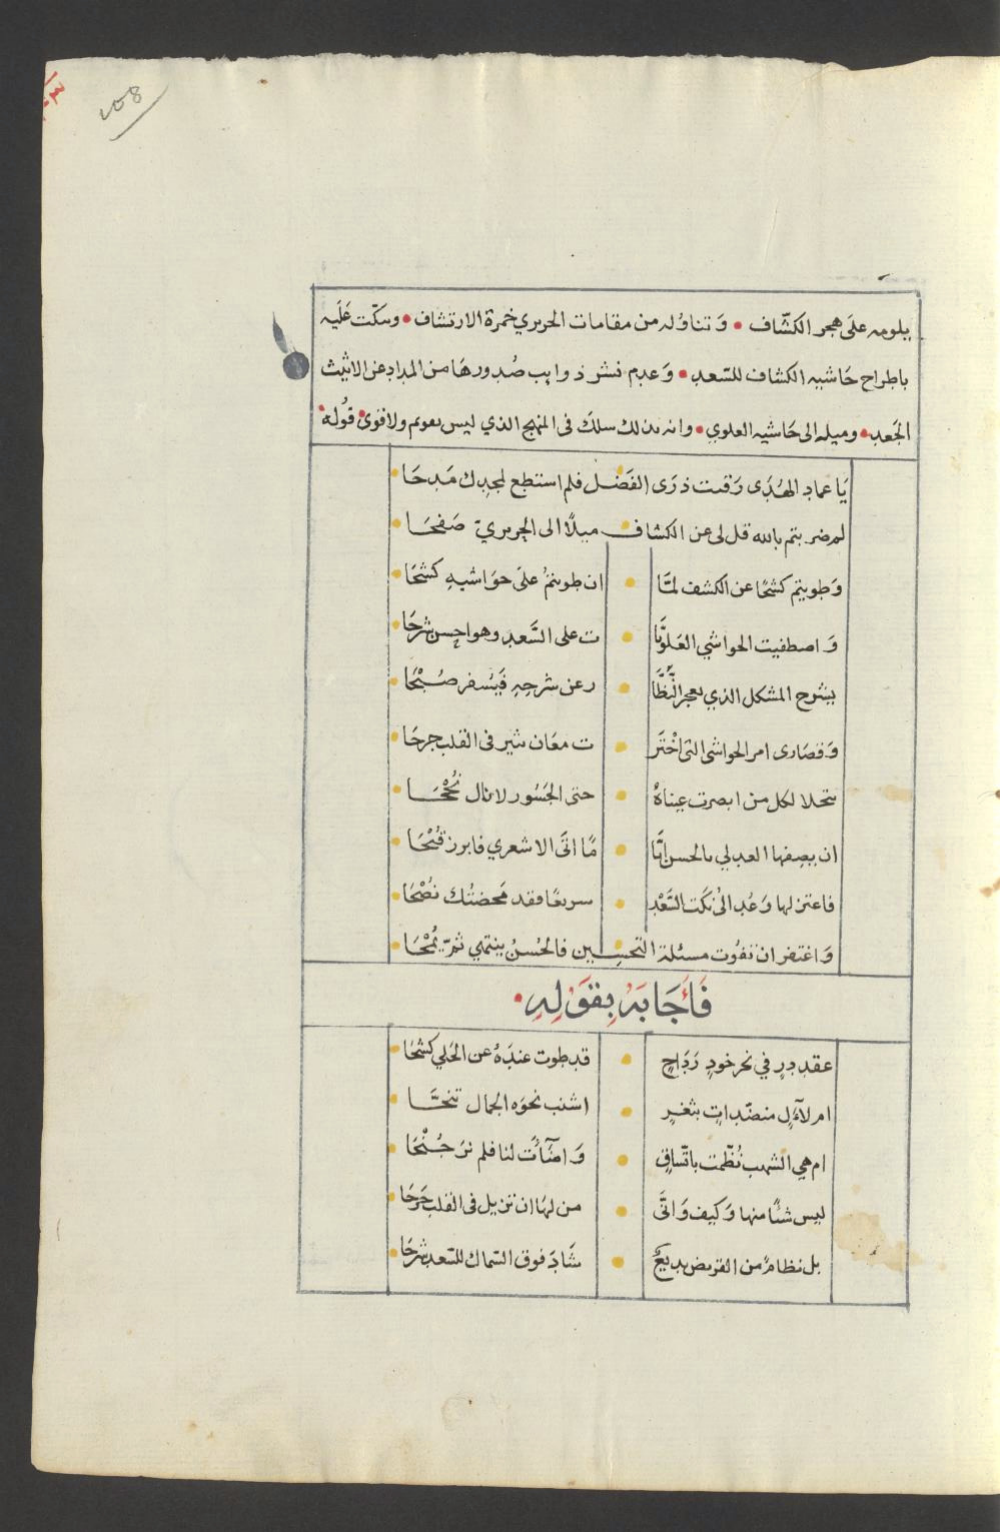 يلومه على هجر الكشّاف • وَتناوُله من مقامات الحريري خمرة الارتشاف • وسكّت عَلَيه
باطراح حَاشيه الكشاف للسّعد • وَعدم نشر ذوايب صُدورهَا من المداد عن الاثيث
الجَعد • وميله الى حَاشيه العلوي • وانه بذلك سلك فى المنهج الذي ليس بقويم ولا قوى • قُوله •
يَا عماد الهُدَى رَقيت ذرَى الفَضل فلم استطع لمجدك مَدحَا
لم ضربتم بالله قل لى عن الكشاف ميلًا الى الحريريّ صَفحَا
وَطويتم كشحًا عن الكشف لمّا • ان طويتمُ على حوَاشيهِ كشحَا
وَاصطفيت الحواشي العَلويّا • ت على السَّعد وهو احسن شرحَا
يشرح المشكل الذي يعجز النُّظَّا • ر عن شرحهِ فَيُسفر صُبْحَا
وَقصَارى امر الحواشى التى اخْتَر • ت معَان تثير فى القلب جرحَا
حتى الجَسُور لا نال نُجْحَا
ان يصفها العدلي بالحسن امّا • مّا اتَى الاشعري فابرز قُبْحَا
فاعتزلها وَعُد الىُ نكَت السَّعْد • سريعًا فقد مَحضتُك نُصْحَا
وَاغتفر ان تفوُت مسئلة التحسين فالحُسنُ ينتمي ثمّ يُمْحَا
فَأَجَابَهُ بِقوَلِهِ •
عقد درٍ في نحر خودٍ رَدَاحٍ • قد طوت عندَهُ عن الحَلي كشحَا
ام لآءلٍ منضّداتٍ بثغرٍ • اشنب نحوَه الجمال تنحَّا
ام هي الشهب نُظّمت باتّساقٍ • وَاضَآءَت لنا فلم نرَ جُنْحَا
ليس شئًا منها وَكيف وَاتَّى • من لهَا ان تزيل فى القلب جَرحَا
بل نظامٌ من القريض بديعٌ • شَادَ فوق السّماك للسّعد شرحَا